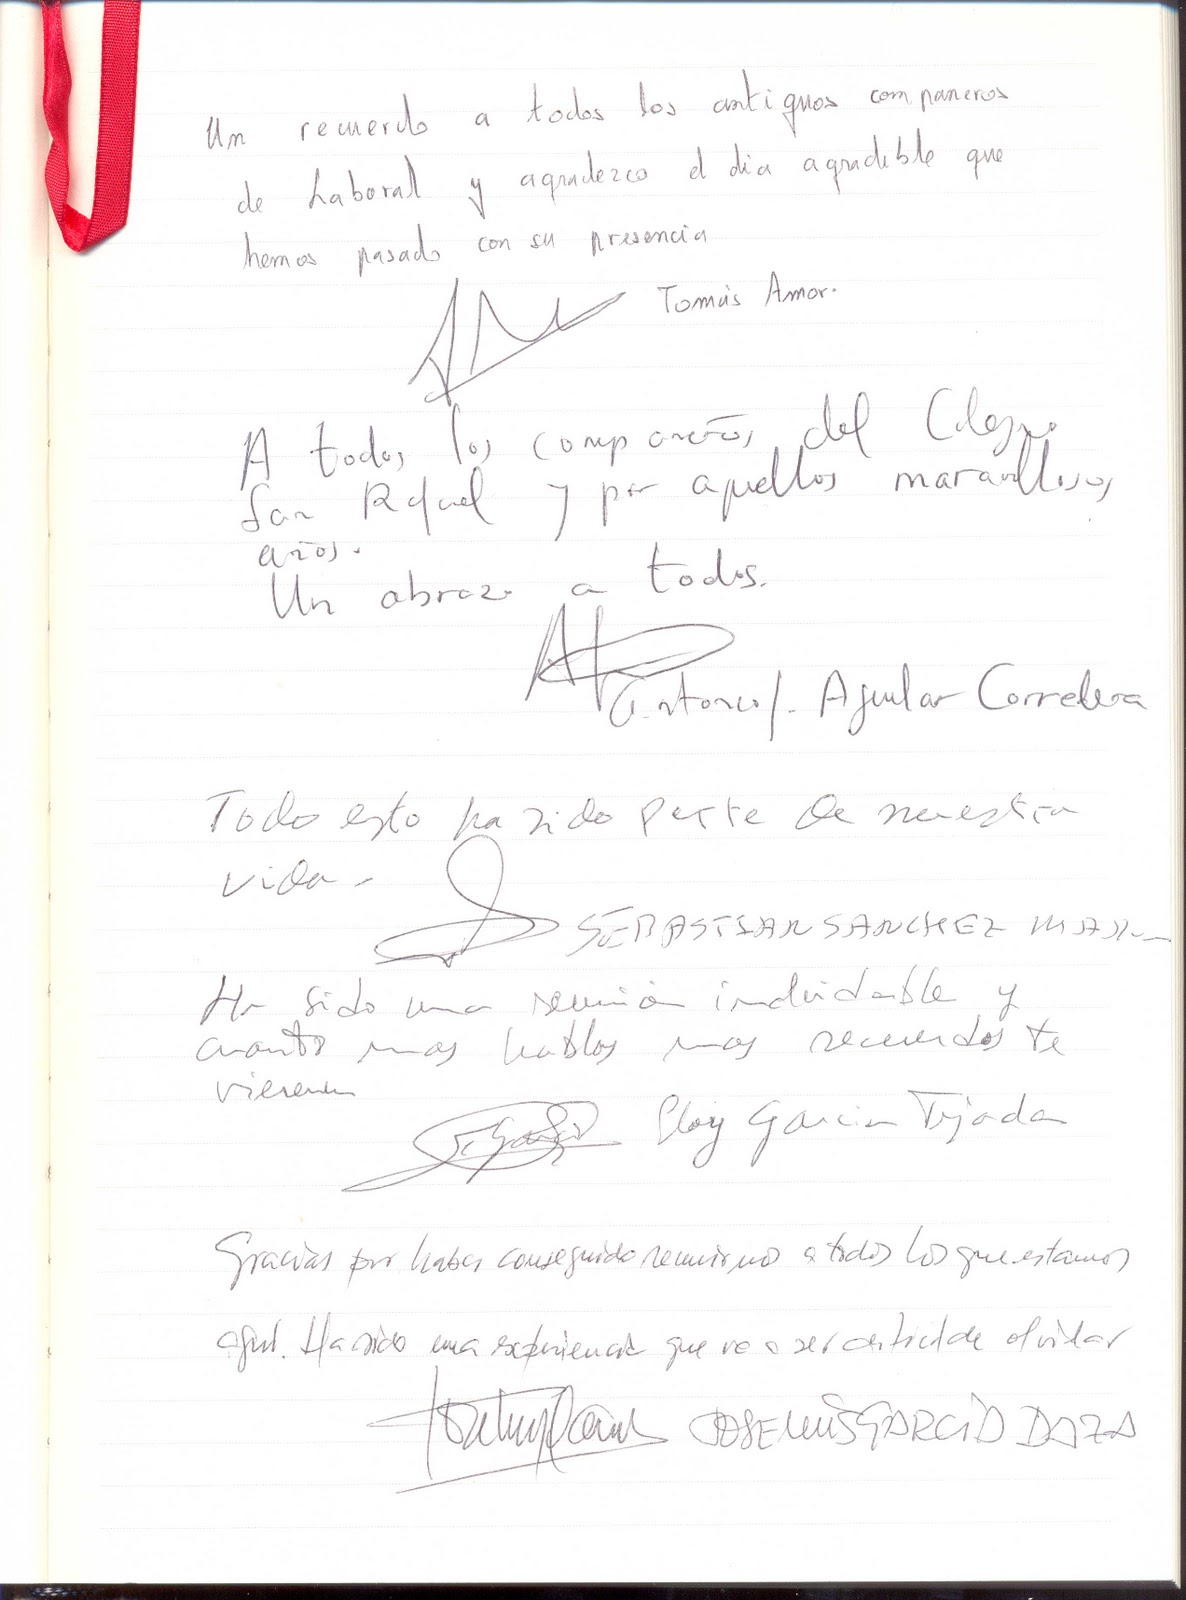 Un recuerdo a todos los antiguos companeros
de Laboral y agradezco el dia agradible que
hemos pasado con su presencia
Tomás Amor.
A todos los compañeros del Colegio
San Rafael y por aquellos maravillosos
años.
Un abrazo a todos.
Antonio J. Aguilar Corredera
Todo esto ha sido parte de nuestra
vida.
SEBASTIAN SANCHEZ
Ha sido una reunión inolvidable y
cuanto mas hablas mas recuerdos te
vienen
Eloy Garcia Tejada
Gracias por haber conseguido reunirno a todos los que estamos
aquí. Ha sido una experiencia que va a ser dificil de olvidar
JOSE LUIS GARCIA DAZA